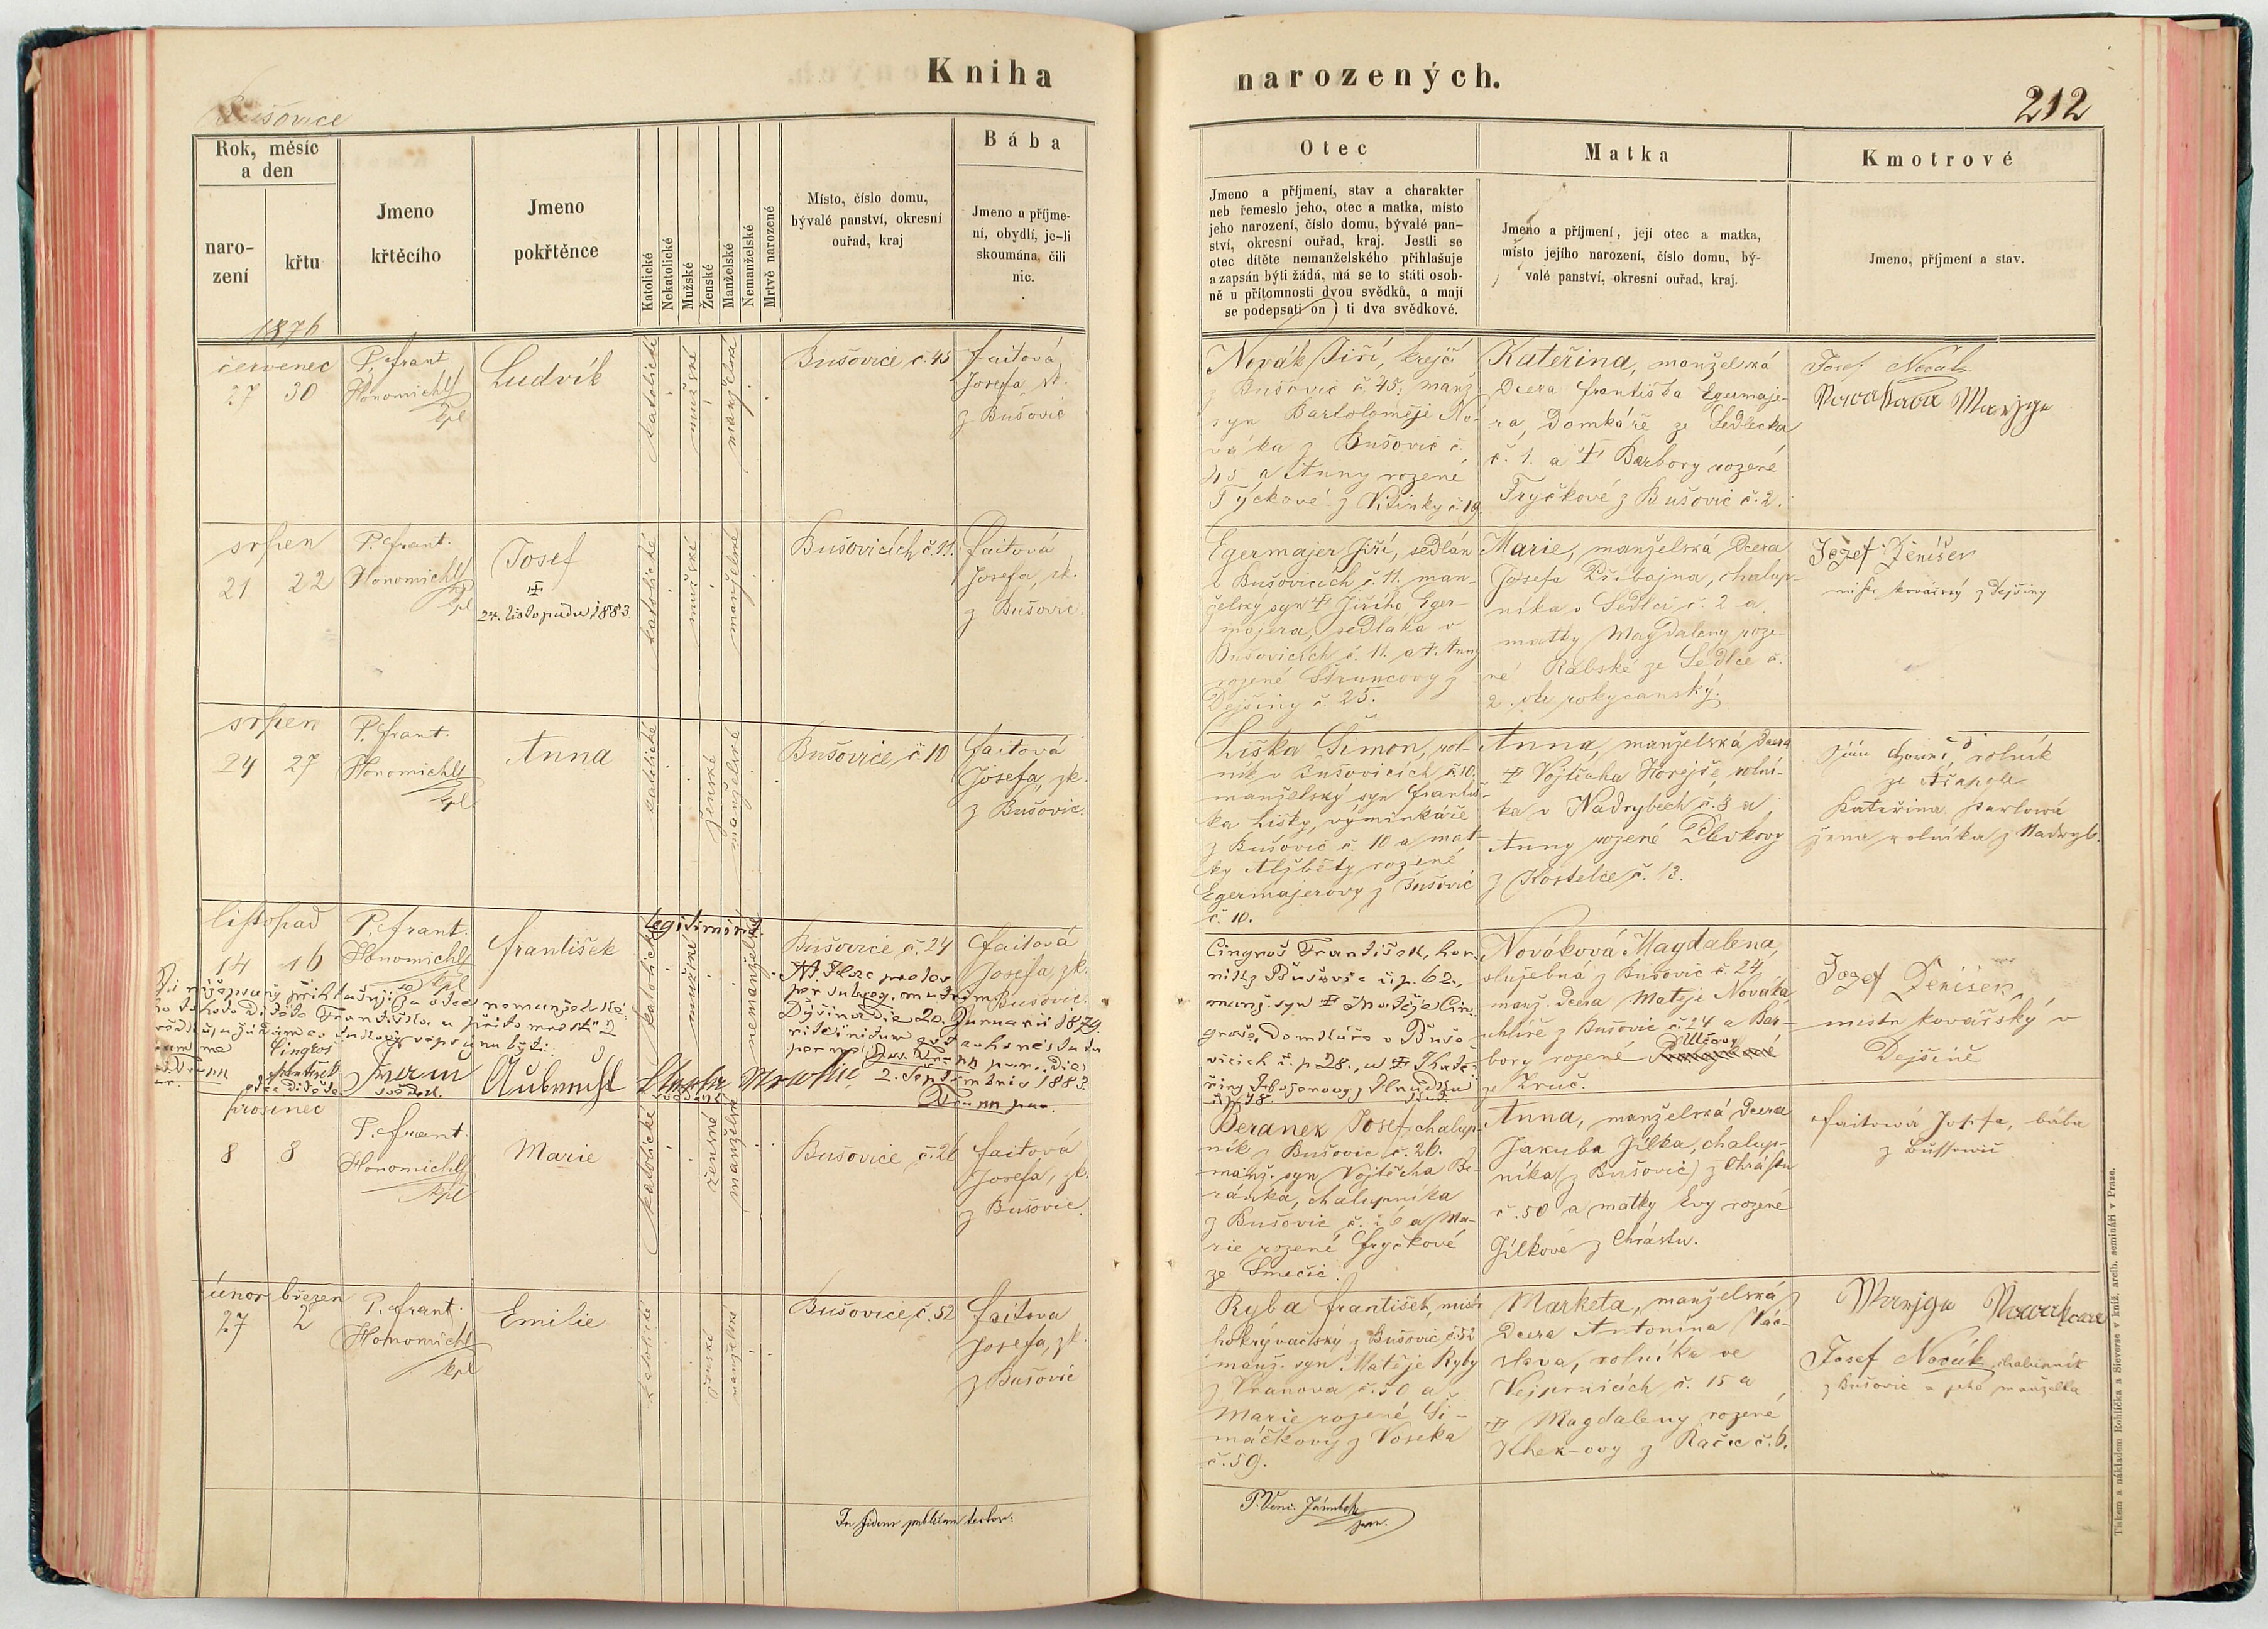 Kniha
narozených.
212
Bušovice
Rok, měsíc
a den
naro-
zení
křtu
Jmeno
křtěcího
Jmeno
pokřtěnce
Katolické
Nekatolické
Mužské
Ženské
Manželské
Nemanželské
Mrtvě narozené
Místo, číslo domu,
bývalé panství, okresní
ouřad, kraj
Bába
Jmeno a příjme-
ní, obydlí, je-li
skoumána, čili
nic.
Otec
Jmeno a příjmení, stav a charakter
neb řemeslo jeho, otec a matka, místo
jeho narození, číslo domu, bývalé pan-
ství, okresní ouřad, kraj. Jestli se
otec dítěte nemanželského přihlašuje
a zapsán býti žádá, má se to státi osob-
ně u přítomnosti dvou svědků, a mají
se podepsati on i ti dva svědkové.
Matka
Jmeno a příjmení, její otec a matka,
místo jejího narození, číslo domu, bý-
valé panství, okresní ouřad, kraj.
Kmotrové
Jmeno, příjmení a stav.
1876
červenec
27 30
P. Frant
Honomichl
kpl
Ludvík
katolické
mužské
manželské
Bušovice č. 45
Faitová
Josefa zk.
z Bušovic
Novák Jiří, krejčí
z Bušovic č. 45, manž.
syn Bartoloměje No-
váka z Bušovic č.
45 a Anny rozené
Týckové z Vitinky č. 19.
Kateřina, manželská
dcera Františka Egermaje-
ra, domkáře ze Sedlecka
č. 1. a Barbory rozené
Fryčkové z Bušovic č. 2.
Josef Novák
Nowakowa Marzye
srpen
21 22
P. Frant.
Honomichl
kpl
Josef
24. listopadu 1883.
katolické
mužské
manželské
Bušovicích č. 11.
Faitová
Josefa, zk.
z Bušovic.
Egermajer Jiří, sedlák
v Bušovicích č. 11. man-
želský syn Jiřího Eger-
majera, sedláka v
Bušovicích č. 11. a Anny
rozené Štruncovy z
Dejšiny č. 25.
Marie, manželská dcera
Josefa Přibajna, chalup-
níka v Sedlci č. 2 a
matky Magdaleny roze-
né Rabské ze Sedlce č.
2. okr rokycanský.
Jozef Ženíšek
mistr kovářský z Dejšiny
srpen
24 27
P. Frant.
Honomichl
kpl
Anna
katolické
ženské
manželské
Bušovice č. 10
Faitová
Josefa, zk.
z Bušovic.
Liška Šimon, rol-
ník v Bušovicích č. 10.
manželský syn Františ-
ka Lišky, výminkáře
z Bušovic č. 10 a mat-
ky Alžběty rozené
Egermajerovy z Bušovic
č. 10.
Anna, manželská dcera
Vojtěcha Horejše, rolní-
ka v Nadrybech č. 8 a
Anny rozené
z Kostelce č. 13.
rolník
Kateřina Pavlowá
žena rolníka z Nadryb.
listopad
14 16
P. Frant.
Honomichl
kpl
František
legitimóní
katolické
mužské
nemanželské
Bušovice č. 24
Faitová
Josefa, zk.
z Bušovic.
Dýšina die 20. Januarii 1879.
2. Septembris 1883
Cingroš
František
otec dítěte
Aubrecht
Cingroš František, hor-
ník z Bušovic č. p. 62.,
manž. syn Matěje Cin-
groše, domkáře v Bušo-
vicích č. p. 28., a Kate-
řiny
Nováková Magdalena,
služebná z Bušovic č. 24,
manž. dcera Matěje Nováka
uhlíře z Bušovic č. 24 a Bar-
bory rozené
ze Zruč.
Jozef Ženíšek,
mistr kovářský v
Dejšině
prosinec
8 8
P. Frant.
Honomichl
kpl
Marie
katolické
ženské
manželské
Bušovice č. 26
Faitová
Josefa, zk.
z Bušovic.
Beranek Josef, chalup-
ník z Bušovic č. 26.
manž. syn Vojtěcha Be-
ránka, chalupníka
z Bušovic č. 26 a Ma-
rie rozené Fryčkové
ze Smečic.
Anna, manželská dcera
Jakuba Jílka, chalup-
níka (z Bušovic) z Chrástu
č. 50 a matky Evy rozené
Jílkové z Chrástu.
Faitowá Josefa, bába
z Buššowic
únor březen
27 2
P. Frant.
Honomichl
kpl
Emilie
katolické
ženské
manželské
Bušovice č. 52
Faitova
Josefa, zk.
z Bušovic
Ryba František, mistr
pokrývačský z Bušovic č. 52
manž. syn Matěje Ryby
z Vranova č. 50 a
Marie rozené Ši-
máčkovy z Voseka
č. 59.
Marketa, manželská
dcera Antonína Vác-
slava, rolníka ve
Vejvrnicích č. 15 a
Magdaleny rozené
z Račic č. 6.
Marzye Nowakowa
Josef Novák chalupník
z Bušovic a jeho manželka
In fidem publicam testor:
Tiskem a nákladem Rohlíčka a Sieverse v kníž. arcib. semináři v Praze.